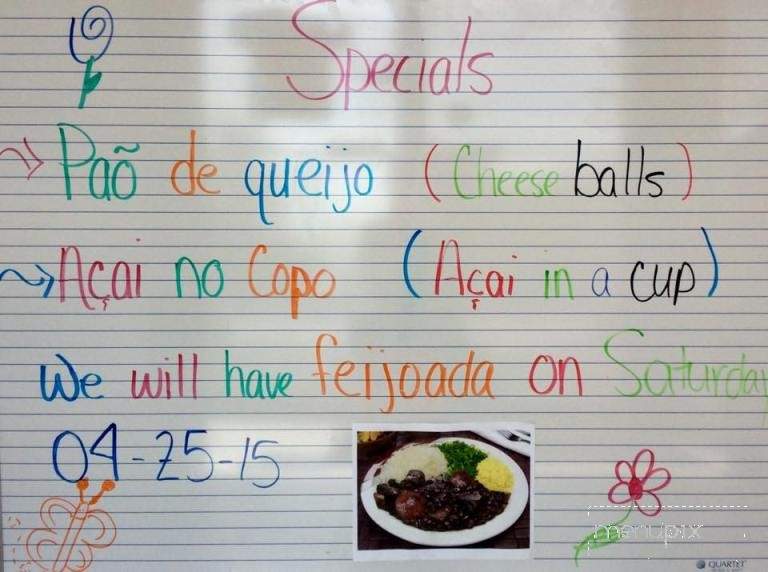 Specials
Paõ de queijo (Cheese balls)
Açai no Copo (Açai in a cup)
We will have feijoada on Saturday
04-25-15
menupix
QUARTET